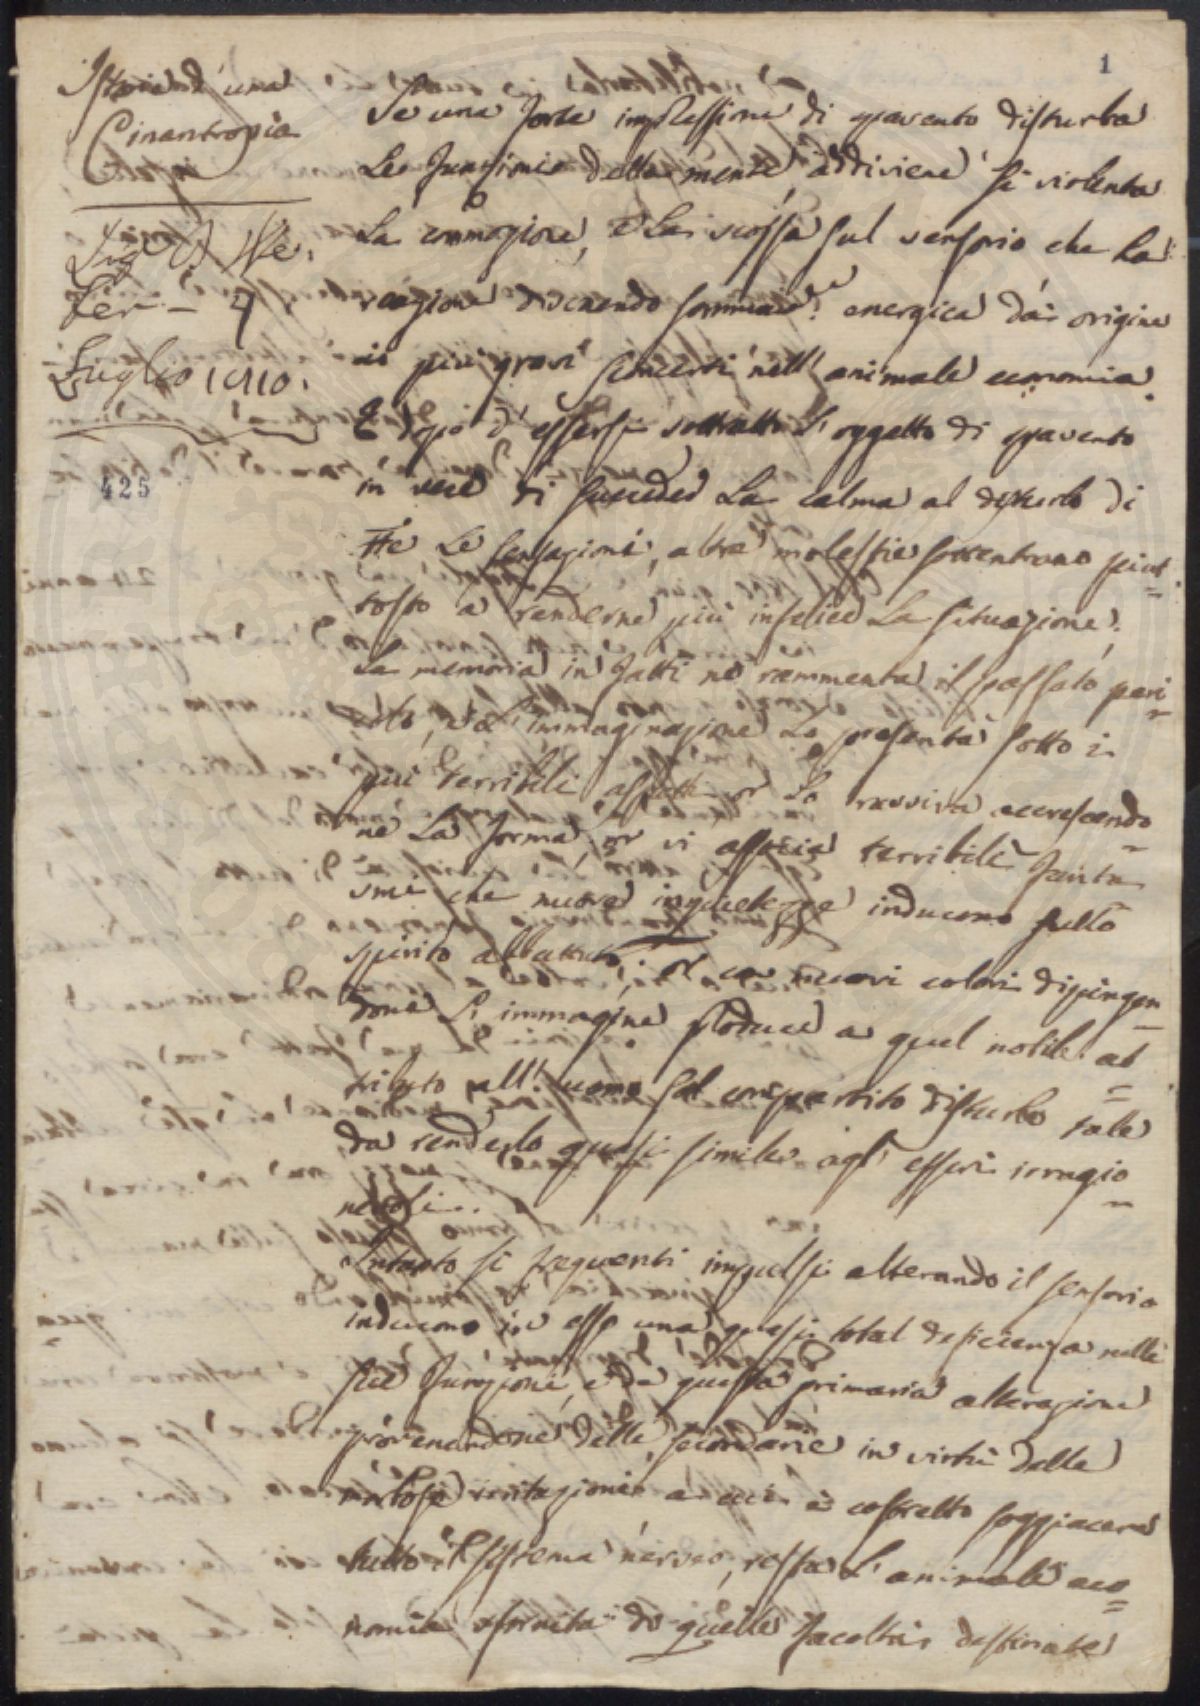 1
Istoria d'una
Cinantropia
Luglio 1810.
425
Se una forte impressione di spavento disturba
le funzioni della mente, addiviene sì violenta
la commozione, e la scossa sul sensorio che la
reazione divenendo energica dà origine
ai più gravi sconcerti nell'animale economia.
E dopo d'essersi sottratto l'oggetto di spavento
in vece di succeder la calma al disturbo di
tte le sensazioni, altre molestie sottentrano piut=
tosto a renderne più infelice la situazione;
la memoria in fatti ne rammenta il passato peri=
colo, e l'immaginazione lo presenta sotto i
più terribili aspetti or lo ravviva accrescendo=
ne la forma, or vi associa terribili fanta=
smi che nuove inquietezze inducono sullo
spirito abbattuto, or con nuovi colori dipingen=
done l'immagine produce a quel nobile at=
tributo all'uomo sol compartito disturbo tale
da renderlo quasi simile agl'esseri irragio=
nevoli.
Intanto sì frequenti impulsi alterando il sensorio
inducono in esso una quasi total deficienza nelle
sue funzioni, e da questa primaria alterazione
provenendone delle secondarie in virtù delle
morbose irritazioni a cui è costretto soggiacere
tutto il sistema nerveo, resta l'animale eco=
nomia sfornita di quelle facoltà destinate